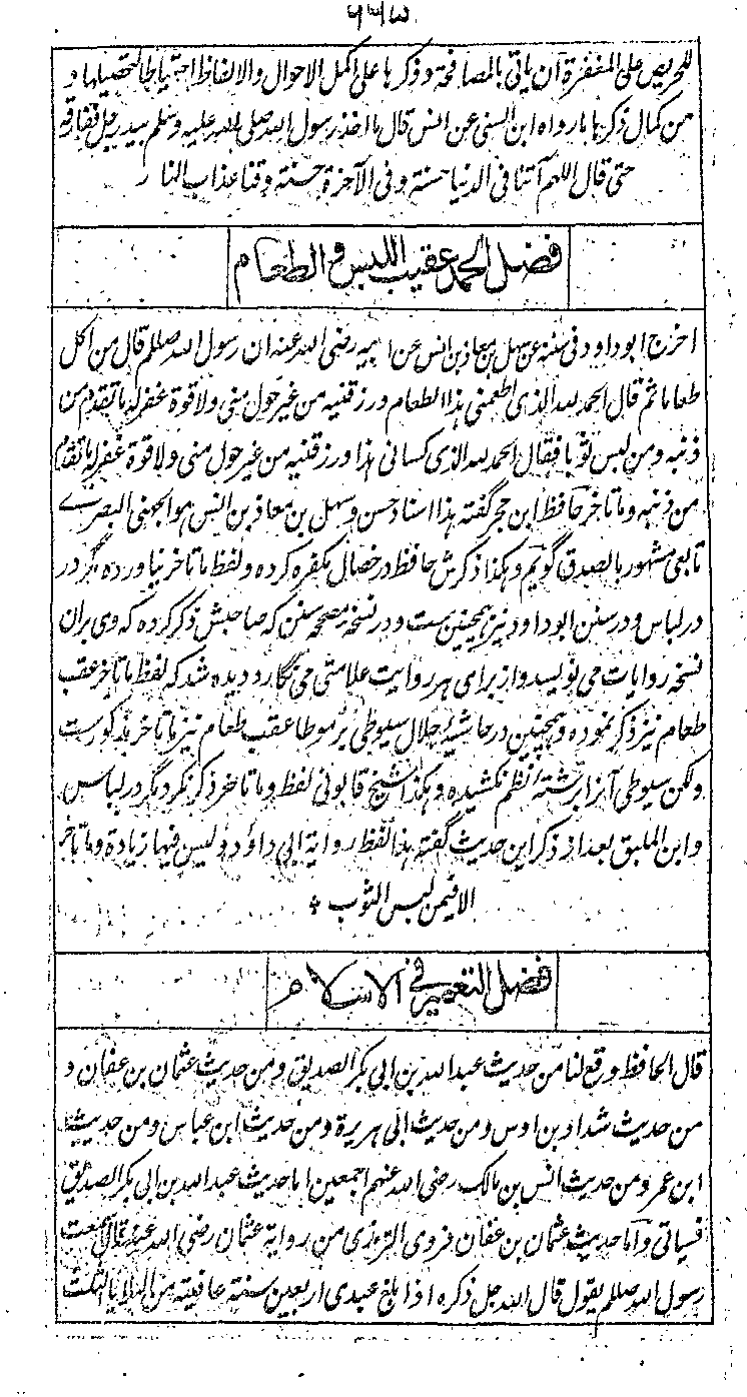 ۶۶۵
للحريص على المغفرة ان ياتى بالمصافحة و ذكرها على اكمل الاحوال والالفاظ احتياطا لتحصيلها و
من كمال ذكرها ما رواه ابن السنى عن انس قال ما اخذ رسول الله صلى الله عليه وسلم بيد رجل ففارقه
حتى قال اللهم آتنا فى الدنيا حسنة وفى الآخرة حسنة وقنا عذاب النار
فضل الحمد عقيب اللبس و الطعام
اخرج ابو داود فى سننه عن سهل بن معاذ بن انس عن ابيه رضى الله عنه ان رسول الله صلعم قال من اكل
طعاما ثم قال الحمد لله الذى اطعمنى هذا الطعام ورزقنيه من غير حول منى ولا قوة غفر له ما تقدم من
ذنبه ومن لبس ثوبا فقال الحمد لله الذى كسانى هذا ورزقنيه من غير حول منى ولا قوة غفر له ما تقدم
من ذنبه وما تاخر حافظ ابن حجر گفته هذا اسناد حسن وسهل بن معاذ بن انس هو الجهنى البصرے
تابعى مشهور بالصدق گويم وهكذا ذكرش حافظ در خصال مكفره كرده ولفظ ما تاخر نياورده مگر در
در لباس و در سنن ابو داود نيز همچنين ست و در نسخهٔ مصححه سنن كه صاحبش ذكر كرده كه وى بران
نسخه روايات مى نويسد و از براى هر روايت علامتى مى نگارد ديده شد كه لفظ ما تاخر عقب
طعام نيز ذكر نموده و همچنين در حاشيهٔ جلال سيوطى بر موطا عقب طعام نيز ما تاخر مذكورست
ولكن سيوطى آنرا برشتهٔ نظم نكشيده و هكذا شيخ قابونى لفظ وما تاخر ذكر نكرد مگر در لباس
وابن الملقن بعد از ذكر اين حديث گفته هذا لفظ رواية ابى داؤد و ليس فيها زيادة وما تاخر
الا فيمن لبس الثوب
فضل التعمير فى الاسلام
قال الحافظ وقع لنا من حديث عبد الله بن ابى بكر الصديق ومن حديث عثمان بن عفان و
من حديث شداد بن اوس ومن حديث ابى هريرة ومن حديث ابن عباس ومن حديث
ابن عمر ومن حديث انس بن مالك رضى الله عنهم اجمعين اما حديث عبد الله بن ابى بكر الصديق
فسياتى واما حديث عثمان بن عفان فروى الترمذى من رواية عثمان رضى الله عنه قال سمعت
رسول الله صلعم يقول قال الله جل ذكره اذا بلغ عبدى اربعين سنة عافيته من البلايا الثلث